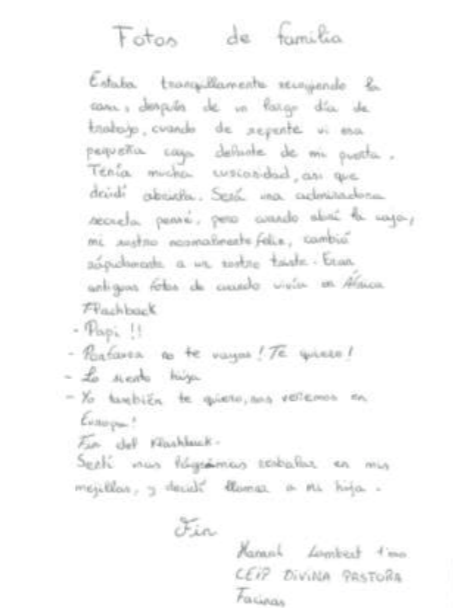 Fotos de familia
Estaba tranquilamente recogiendo la
casa, después de un largo día de
trabajo, cuando de repente vi esa
pequeña caja delante de mi puerta.
Tenía mucha curiosidad, asi que
decidí abrirla. Será una admiradora
secreta pensé, pero cuando abrí la caja,
mi rostro normalmente feliz, cambió
rápidamente a un rostro triste. Eran
antiguas fotos de cuando vivía en África
Flashback
- Papi !!
- Porfavor no te vayas! Te quiero!
- Lo siento hija
- Yo también te quiero, nos veremos en
Europa!
Fin del Flashback.
Sentí unas lágrimas resbalar en mis
mejillas, y decidí llamar a mi hija.
Fin
Lambert
CEIP DIVINA PASTORA
Facinas